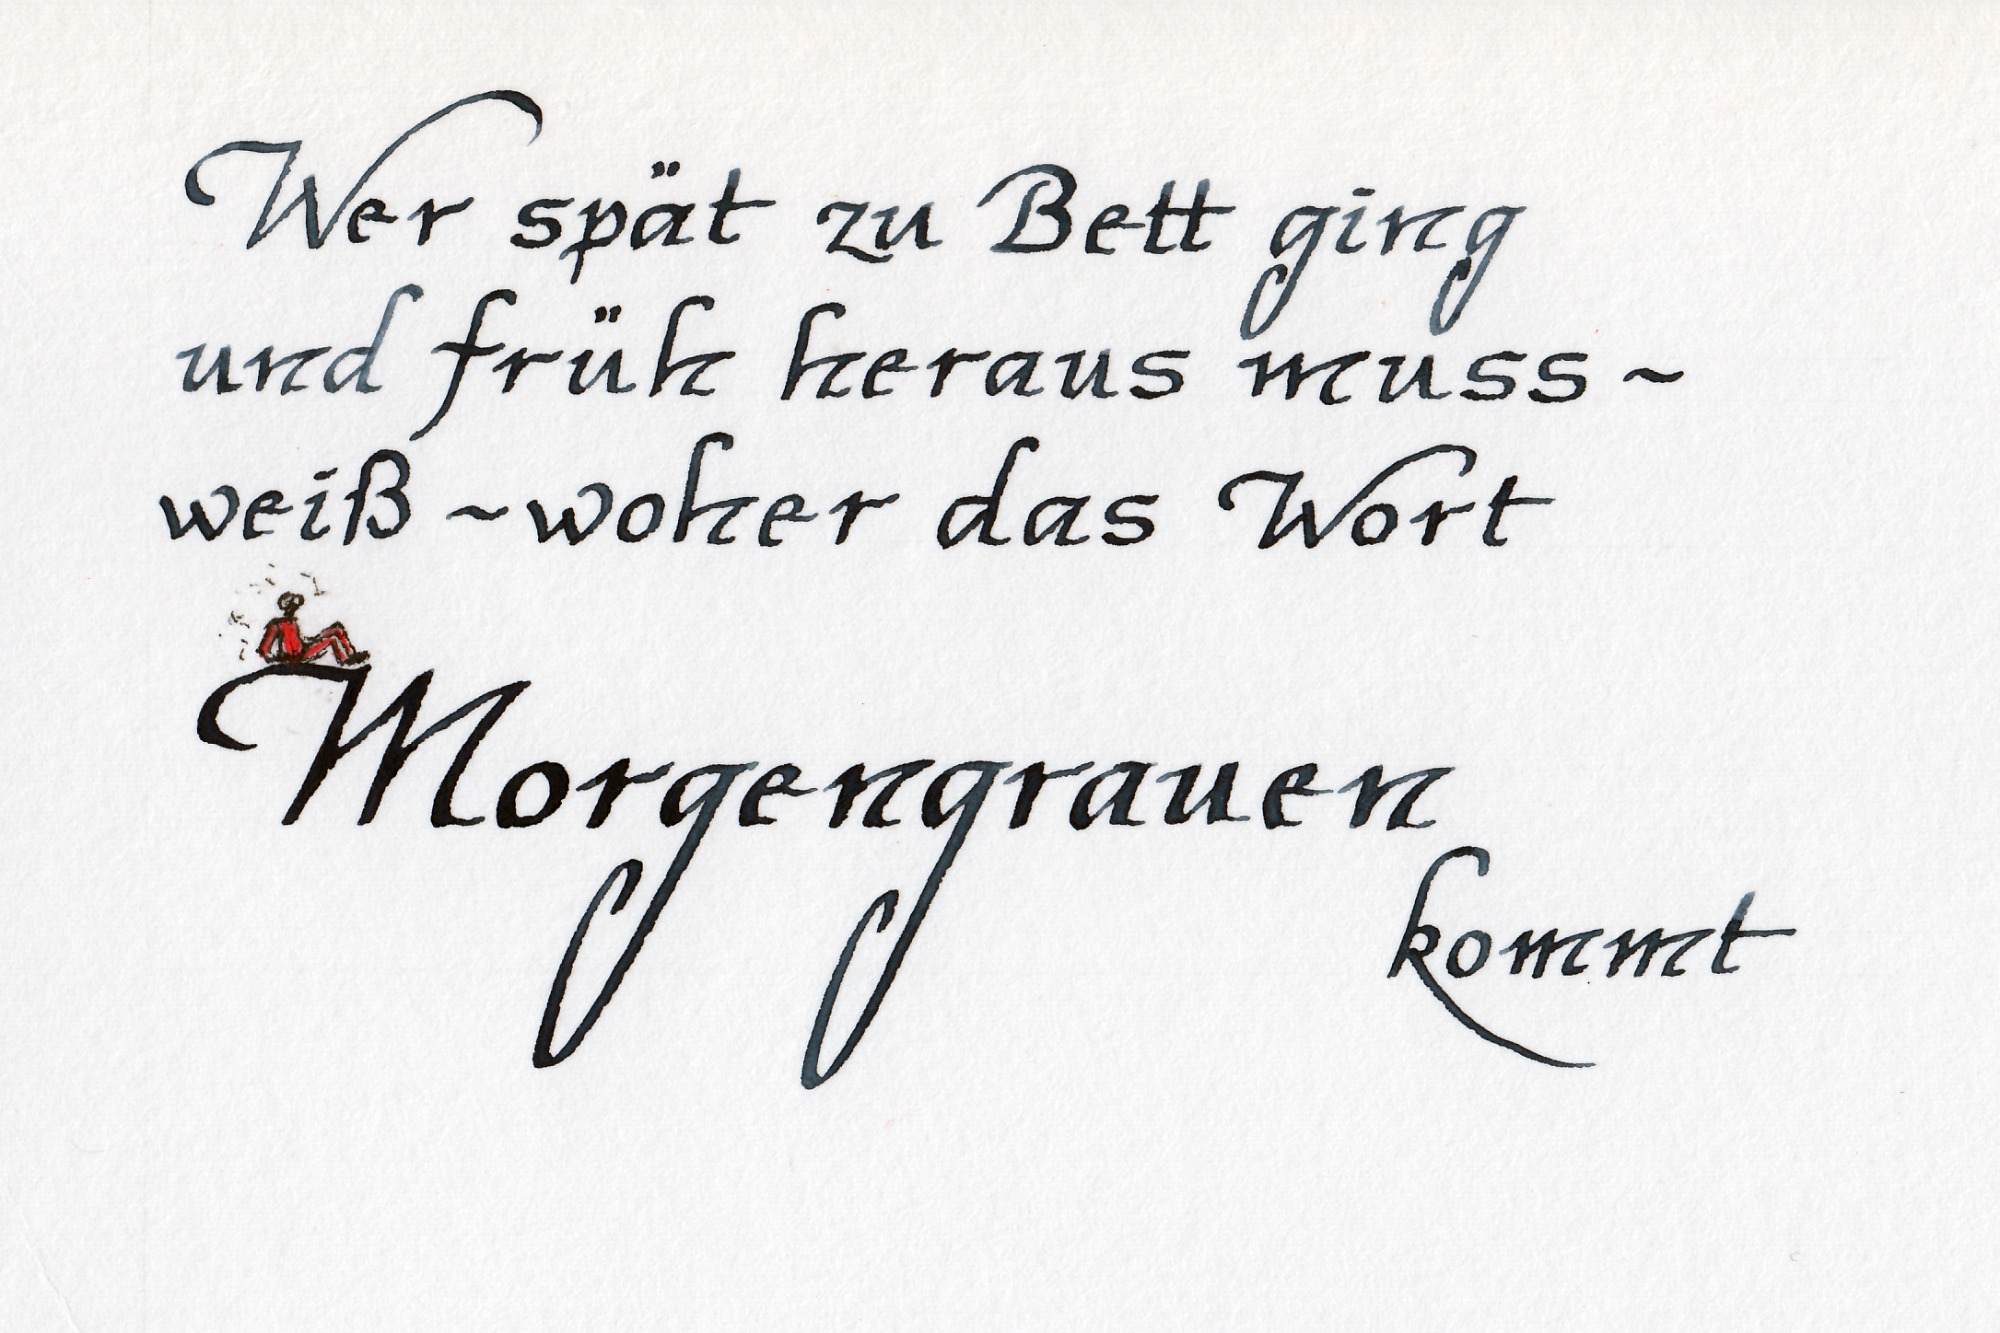 Wer spät zu Bett ging
und früh heraus muss ~
weiß ~ woher das Wort
Morgengrauen
kommt